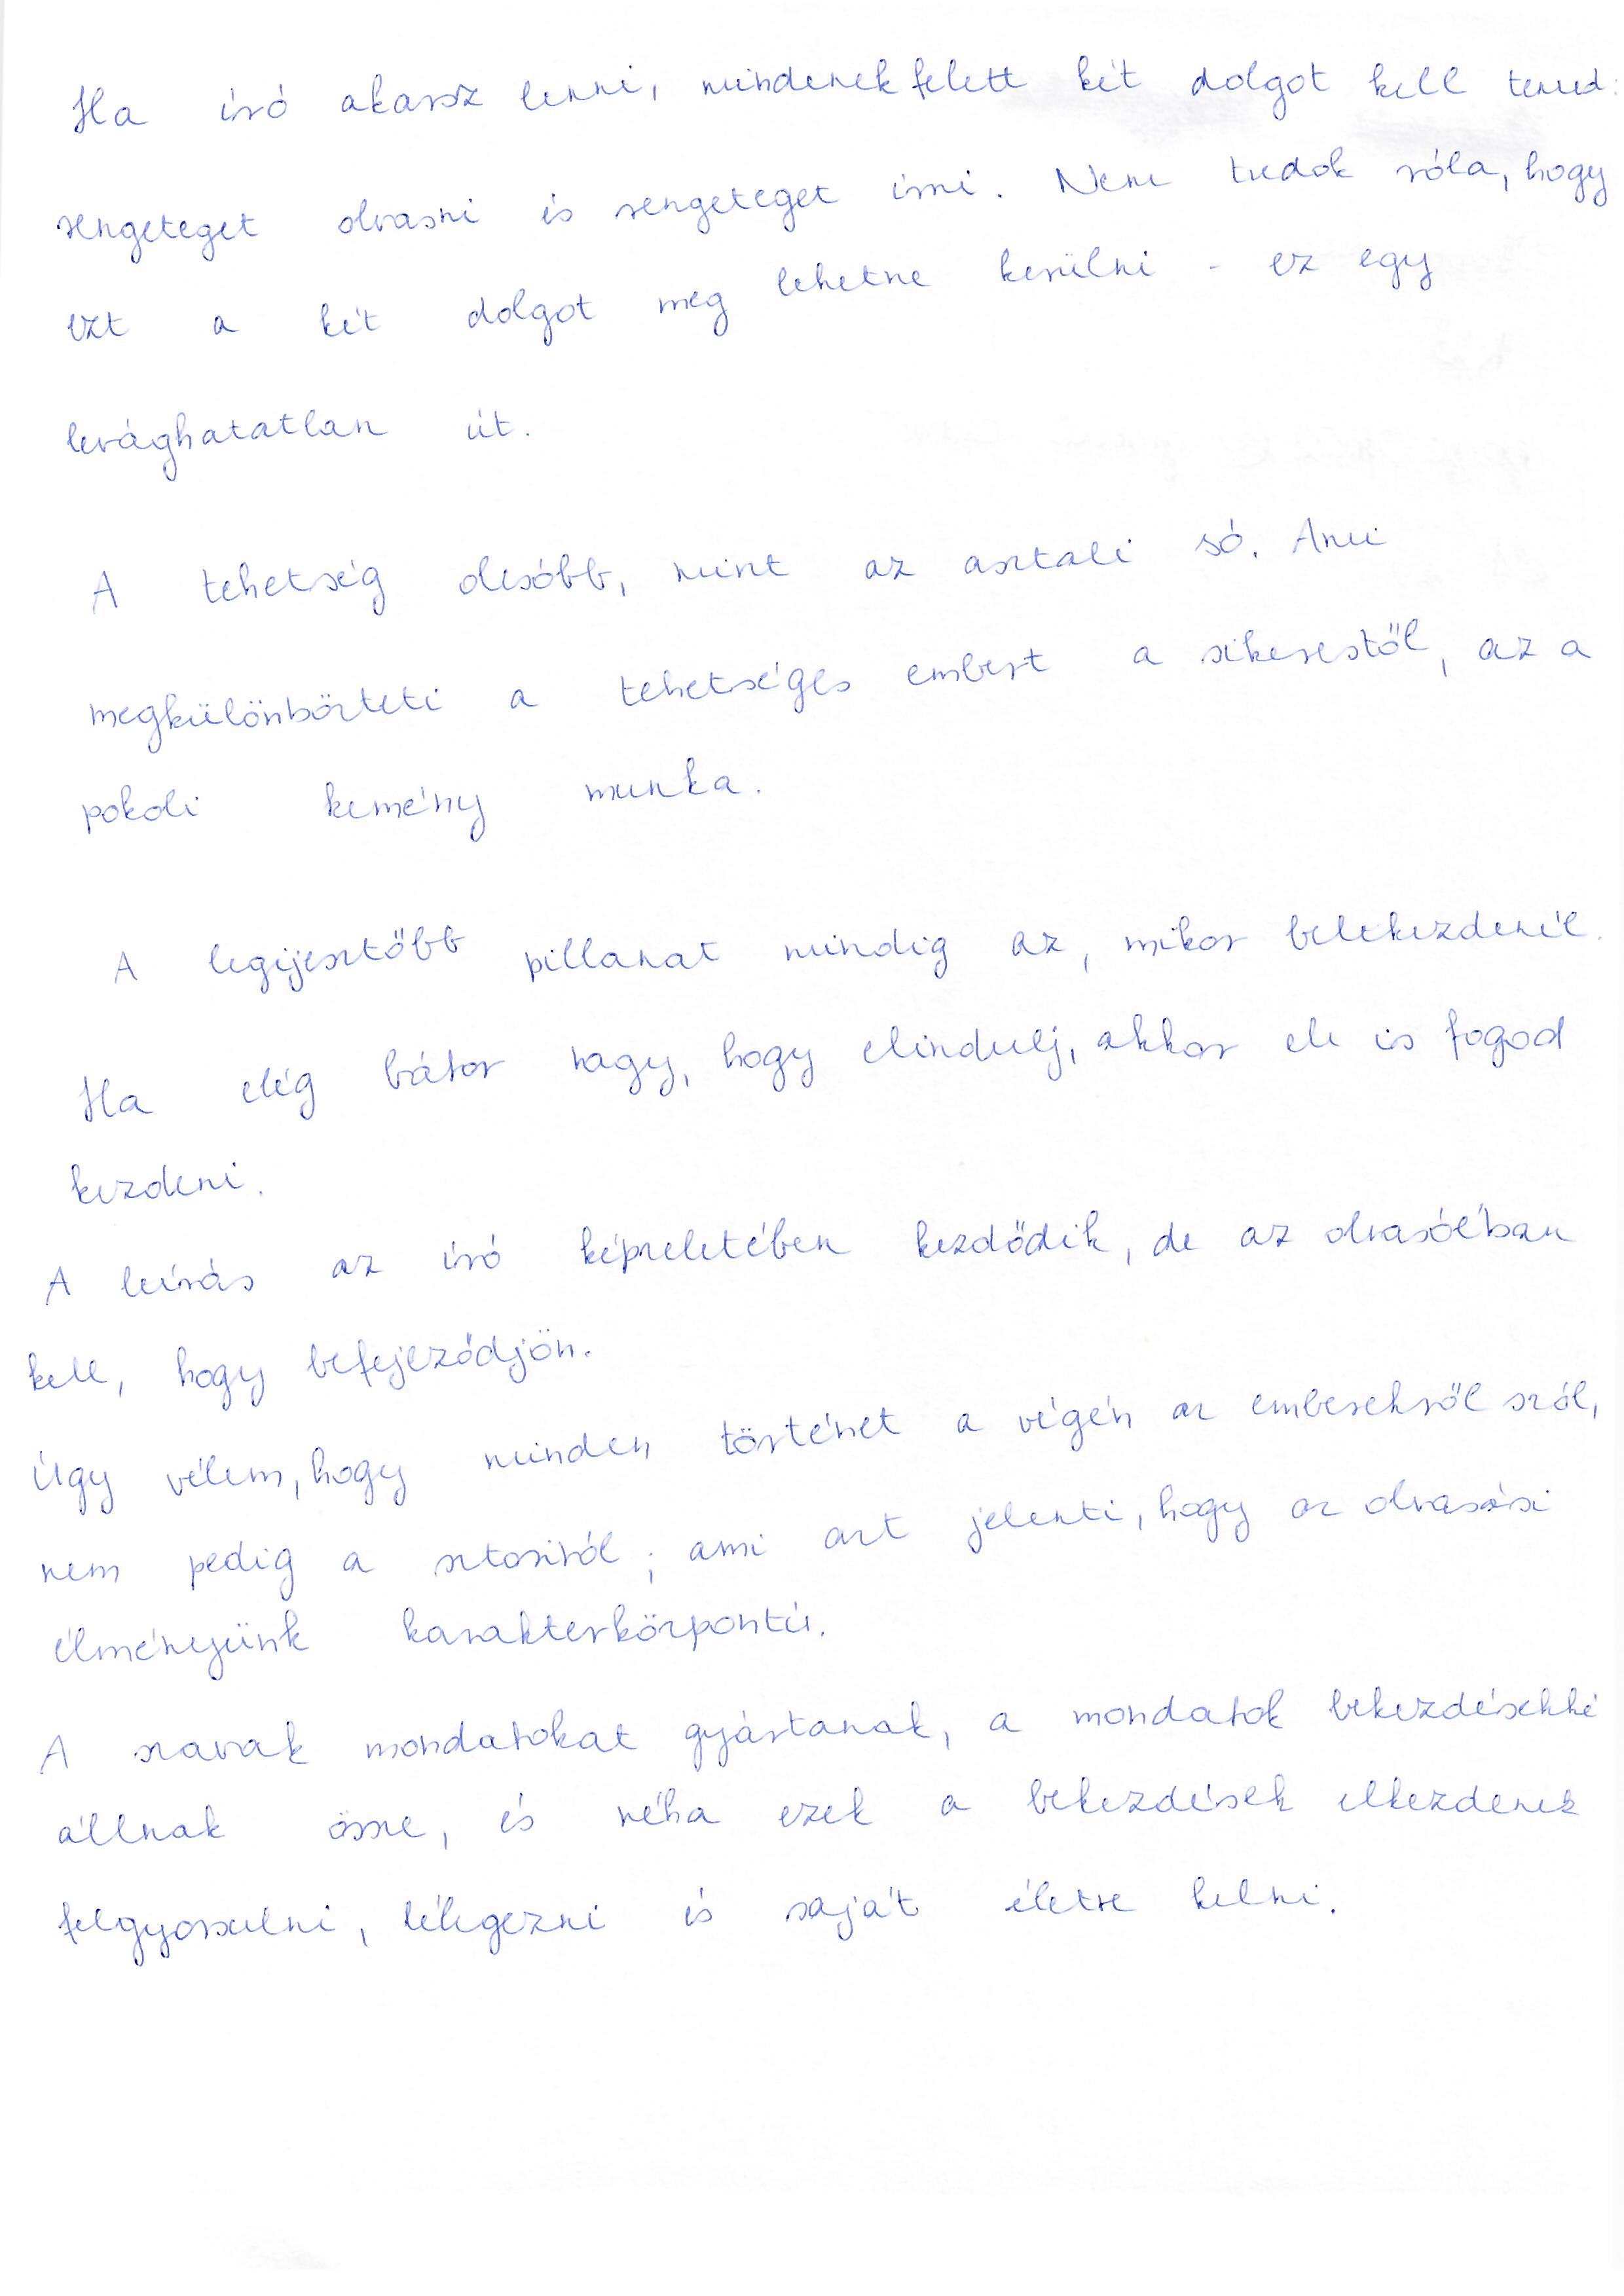 Ha író akarsz lenni, mindenekfelett két dolgot kell tenned:
rengeteget olvasni és rengeteget írni. Nem tudok róla, hogy
ezt a két dolgot meg lehetne kerülni - ez egy
levághatatlan út.
A tehetség olcsóbb, mint az asztali só. Ami
megkülönbözteti a tehetséges embert a sikerestől, az a
pokoli kemény munka.
A legijesztőbb pillanat mindig az, mikor belekezdenél.
Ha elég bátor vagy, hogy elindulj, akkor ele is fogod
kezdeni.
A leírás az író képzeletében kezdődik, de az olvasóéban
kell, hogy befejeződjön.
Úgy vélem, hogy minden történet a végén az emberekről szól,
nem pedig a sztoriról; ami azt jelenti, hogy az olvasási
élményünk karakterközpontú.
A szavak mondatokat gyártanak, a mondatok bekezdésekké
állnak össze, és néha ezek a bekezdések elkezdenek
felgyorsulni, lélegezni és saját életre kelni.